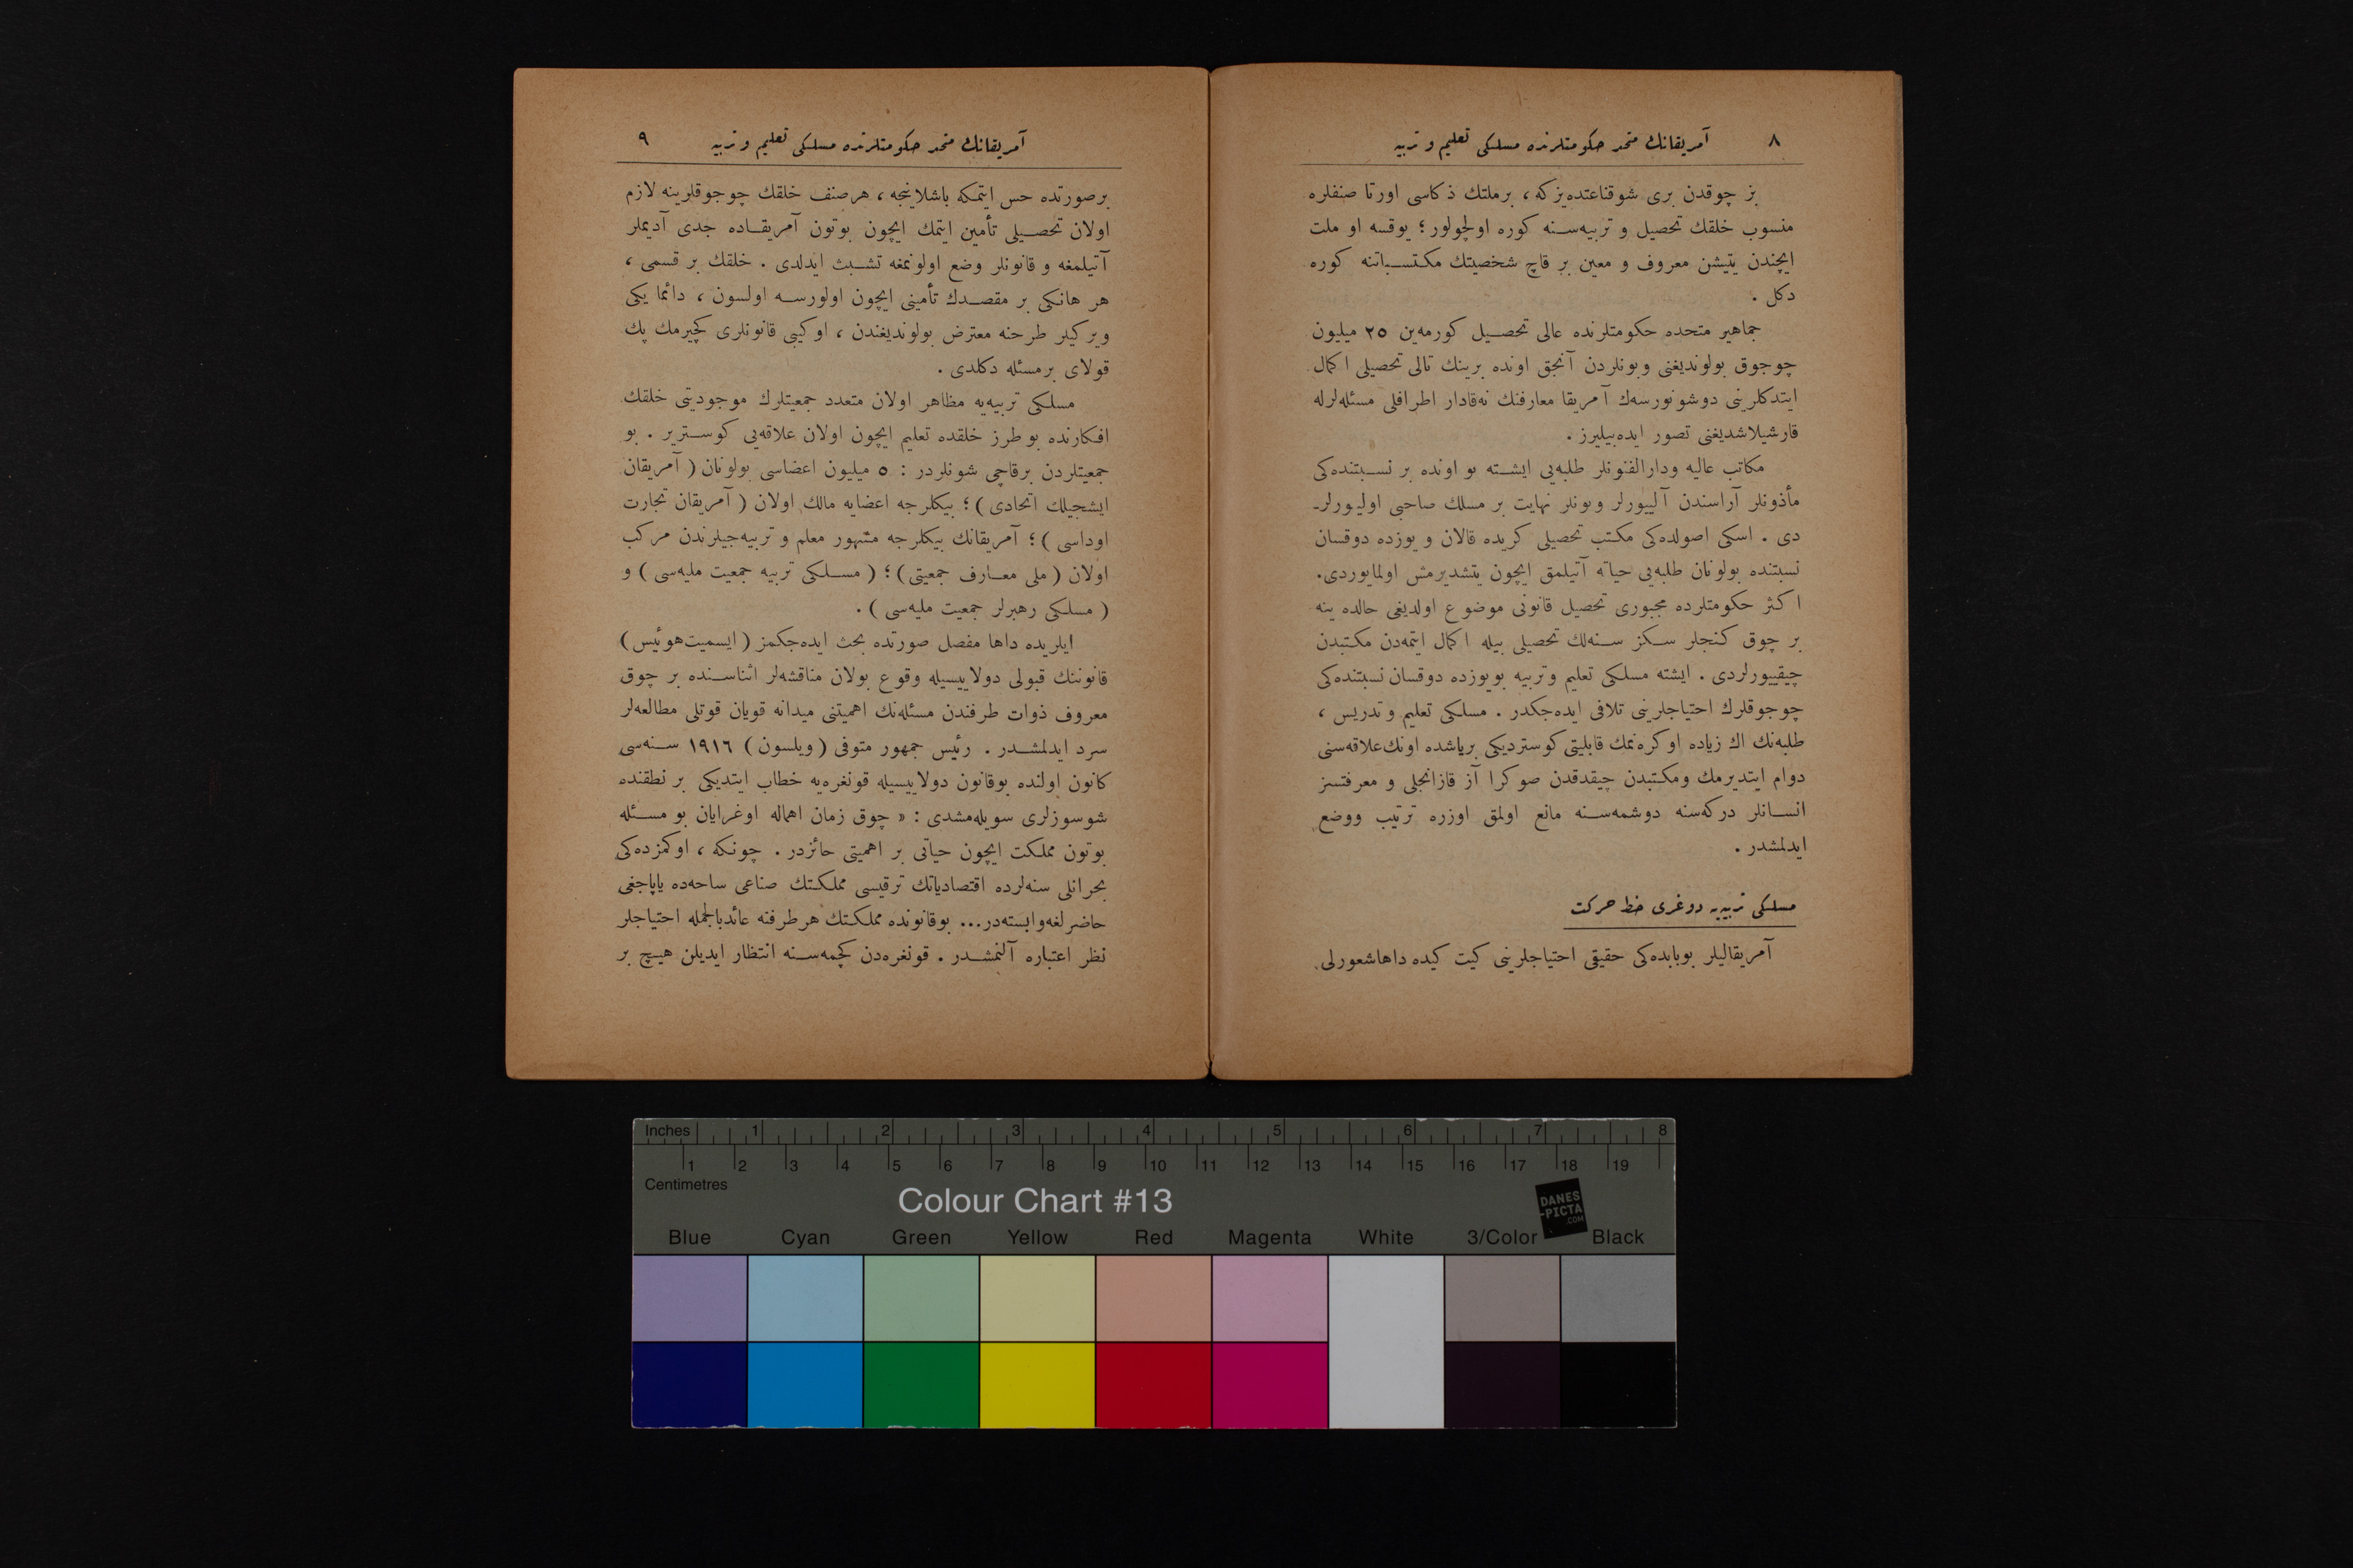 ٨ آمريقانك متحد حكومتلرنده مسلكى تعليم و تربيه
بز چوقدن برى شوقناعتده‌يزكه ، برملتك ذكاسى اورتا صنفلره
منسوب خلقك تحصيل و تربيه‌سنه كوره اولچولور ؛ يوقسه او ملت
ايچندن يتيشن معروف و معين بر قاچ شخصيتك مكتسباتنه كوره
دكل .
جماهير متحده حكومتلرنده عالى تحصيل كورمه‌ين ٢٥ ميليون
چوجوق بولونديغنى وبونلردن آنجق اونده برينك تالى تحصيلى اكمال
ايتدكلرينى دوشونورسه‌ك آمريقا معارفنك نه‌قادار اطرافلى مسئله‌لرله
قارشيلاشديغنى تصور ايده‌بيليرز .
مكاتب عاليه ودارالفنونلر طلبه‌يى ايشته بو اونده بر نسبتنده‌كى
مأذونلر آراسندن آلييورلر وبونلر نهايت بر مسلك صاحبى اوليورلر-
دى . اسكى اصولده‌كى مكتب تحصيلى كريده قالان و يوزده دوقسان
نسبتنده بولونان طلبه‌يى حياته آتيلمق ايچون يتشديرمش اولمايوردى.
اكثر حكومتلرده مجبورى تحصيل قانونى موضوع اولديغى حالده ينه
بر چوق كنجلر سكز سنه‌لك تحصيلى بيله اكمال ايتمه‌دن مكتبدن
چيقييورلردى . ايشته مسلكى تعليم وتربيه بويوزده دوقسان نسبتنده‌كى
چوجوقلرك احتياجلرينى تلافى ايده‌جكدر . مسلكى تعليم وتدريس ،
طلبه‌نك اك زياده اوكره‌نمك قابليتى كوسترديكى برياشده اونك‌علاقه‌سنى
دوام ايتديرمك ومكتبدن چيقدقدن صوكرا آز قازانجلى و معرفتسز
انسانلر دركه‌سنه دوشمه‌سنه مانع اولمق اوزره ترتيب ووضع
ايدلمشدر .
مسلكى تربيه‌يه دوغرى خط حركت
آمريقاليلر بوبابده‌كى حقيقى احتياجلرينى كيت كيده داهاشعورلى
آمريقانك متحد حكومتلرنده مسلكى تعليم و تربيه ٩
برصورتده حس ايتمكه باشلاينجه ، هرصنف خلقك چوجوقلرينه لازم
اولان تحصيلى تأمين ايتمك ايچون بوتون آمريقاده جدى آديملر
آتيلمغه و قانونلر وضع اولونمغه تشبث ايدلدى . خلقك بر قسمى ،
هر هانكى بر مقصدك تأمينى ايچون اولورسه اولسون ، دائما يكى
ويركيلر طرحنه معترض بولونديغندن ، اوكيبى قانونلرى كچيرمك پك
قولاى برمسئله دكلدى .
مسلكى تربيه‌يه مظاهر اولان متعدد جمعيتلرك موجوديتى خلقك
افكارنده بو طرز خلقده تعليم ايچون اولان علاقه‌يى كوسترير . بو
جمعيتلردن برقاچى شونلردر : ٥ ميليون اعضاسى بولونان ( آمريقان
ايشجيلك اتحادى ) ؛ بيكلرجه اعضايه مالك اولان ( آمريقان تجارت
اوداسى ) ؛ آمريقانك بيكلرجه مشهور معلم و تربيه‌جيلرندن مركب
اولان ( ملى معارف جمعيتى ) ؛ ( مسلكى تربيه جمعيت مليه‌سى ) و
( مسلكى رهبرلر جمعيت مليه‌سى ) .
ايلريده داها مفصل صورتده بحث ايده‌جكمز ( ايسميت‌هوئيس )
قانوننك قبولى دولاييسيله وقوع بولان مناقشه‌لر اثناسنده بر چوق
معروف ذوات طرفندن مسئله‌نك اهميتنى ميدانه قويان قوتلى مطالعه‌لر
سرد ايدلمشدر . رئيس جمهور متوفى ( ويلسون ) ١٩١٦ سنه‌سى
كانون اولنده بوقانون دولاييسيله قونغره‌يه خطاب ايتديكى بر نطقنده
شوسوزلرى سويله‌مشدى : « چوق زمان اهماله اوغرايان بو مسئله
بوتون مملكت ايچون حياتى بر اهميتى حائزدر . چونكه ، اوكمزده‌كى
بحرانلى سنه‌لرده اقتصادياتك ترقيسى مملكتك صناعى ساحه‌ده ياپاجغى
حاضرلغه‌وابسته‌در... بوقانونده مملكتك هرطرفنه عائدبالجمله احتياجلر
نظر اعتباره آلنمشدر . قونغره‌دن كچمه‌سنه انتظار ايديلن هيچ بر
Inches 1 2 3 4 5 6 7 8
1 2 3 4 5 6 7 8 9 10 11 12 13 14 15 16 17 18 19
Centimetres
Colour Chart #13
DANES
-PICTA
.COM
Blue Cyan Green Yellow Red Magenta White 3/Color Black